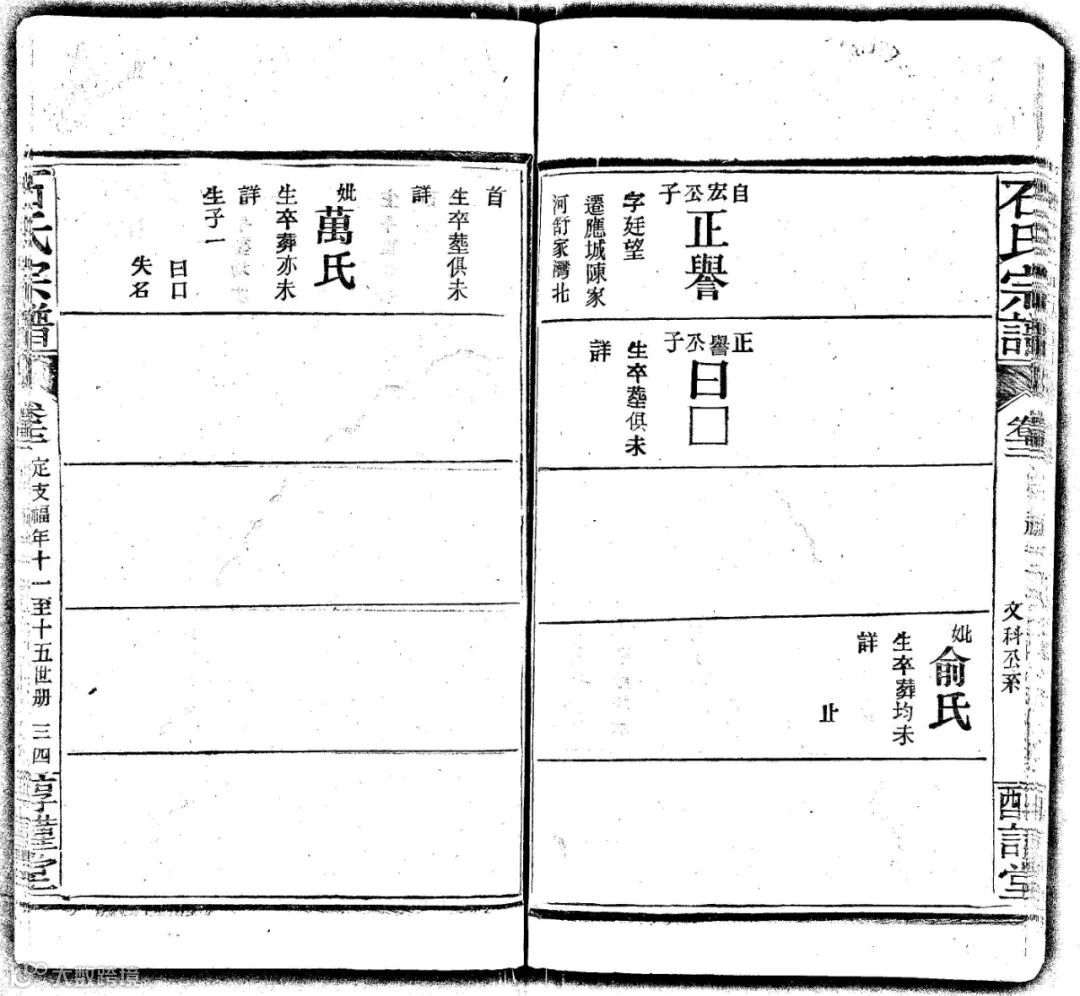 石氏宗譜
卷三
文科公系
酉言堂
自宏公子
正譽
字廷望
遷應城陳家
河訇家灣北
正譽公子
曰□
生卒塟俱未
詳
妣
俞氏
生卒葬均未
詳
止
首
生卒塟俱未
詳
妣
萬氏
生卒葬亦未
詳
生子一
曰口
失名
石氏宗譜
卷三
定支福年十一至十五世册 三四
大數跨境